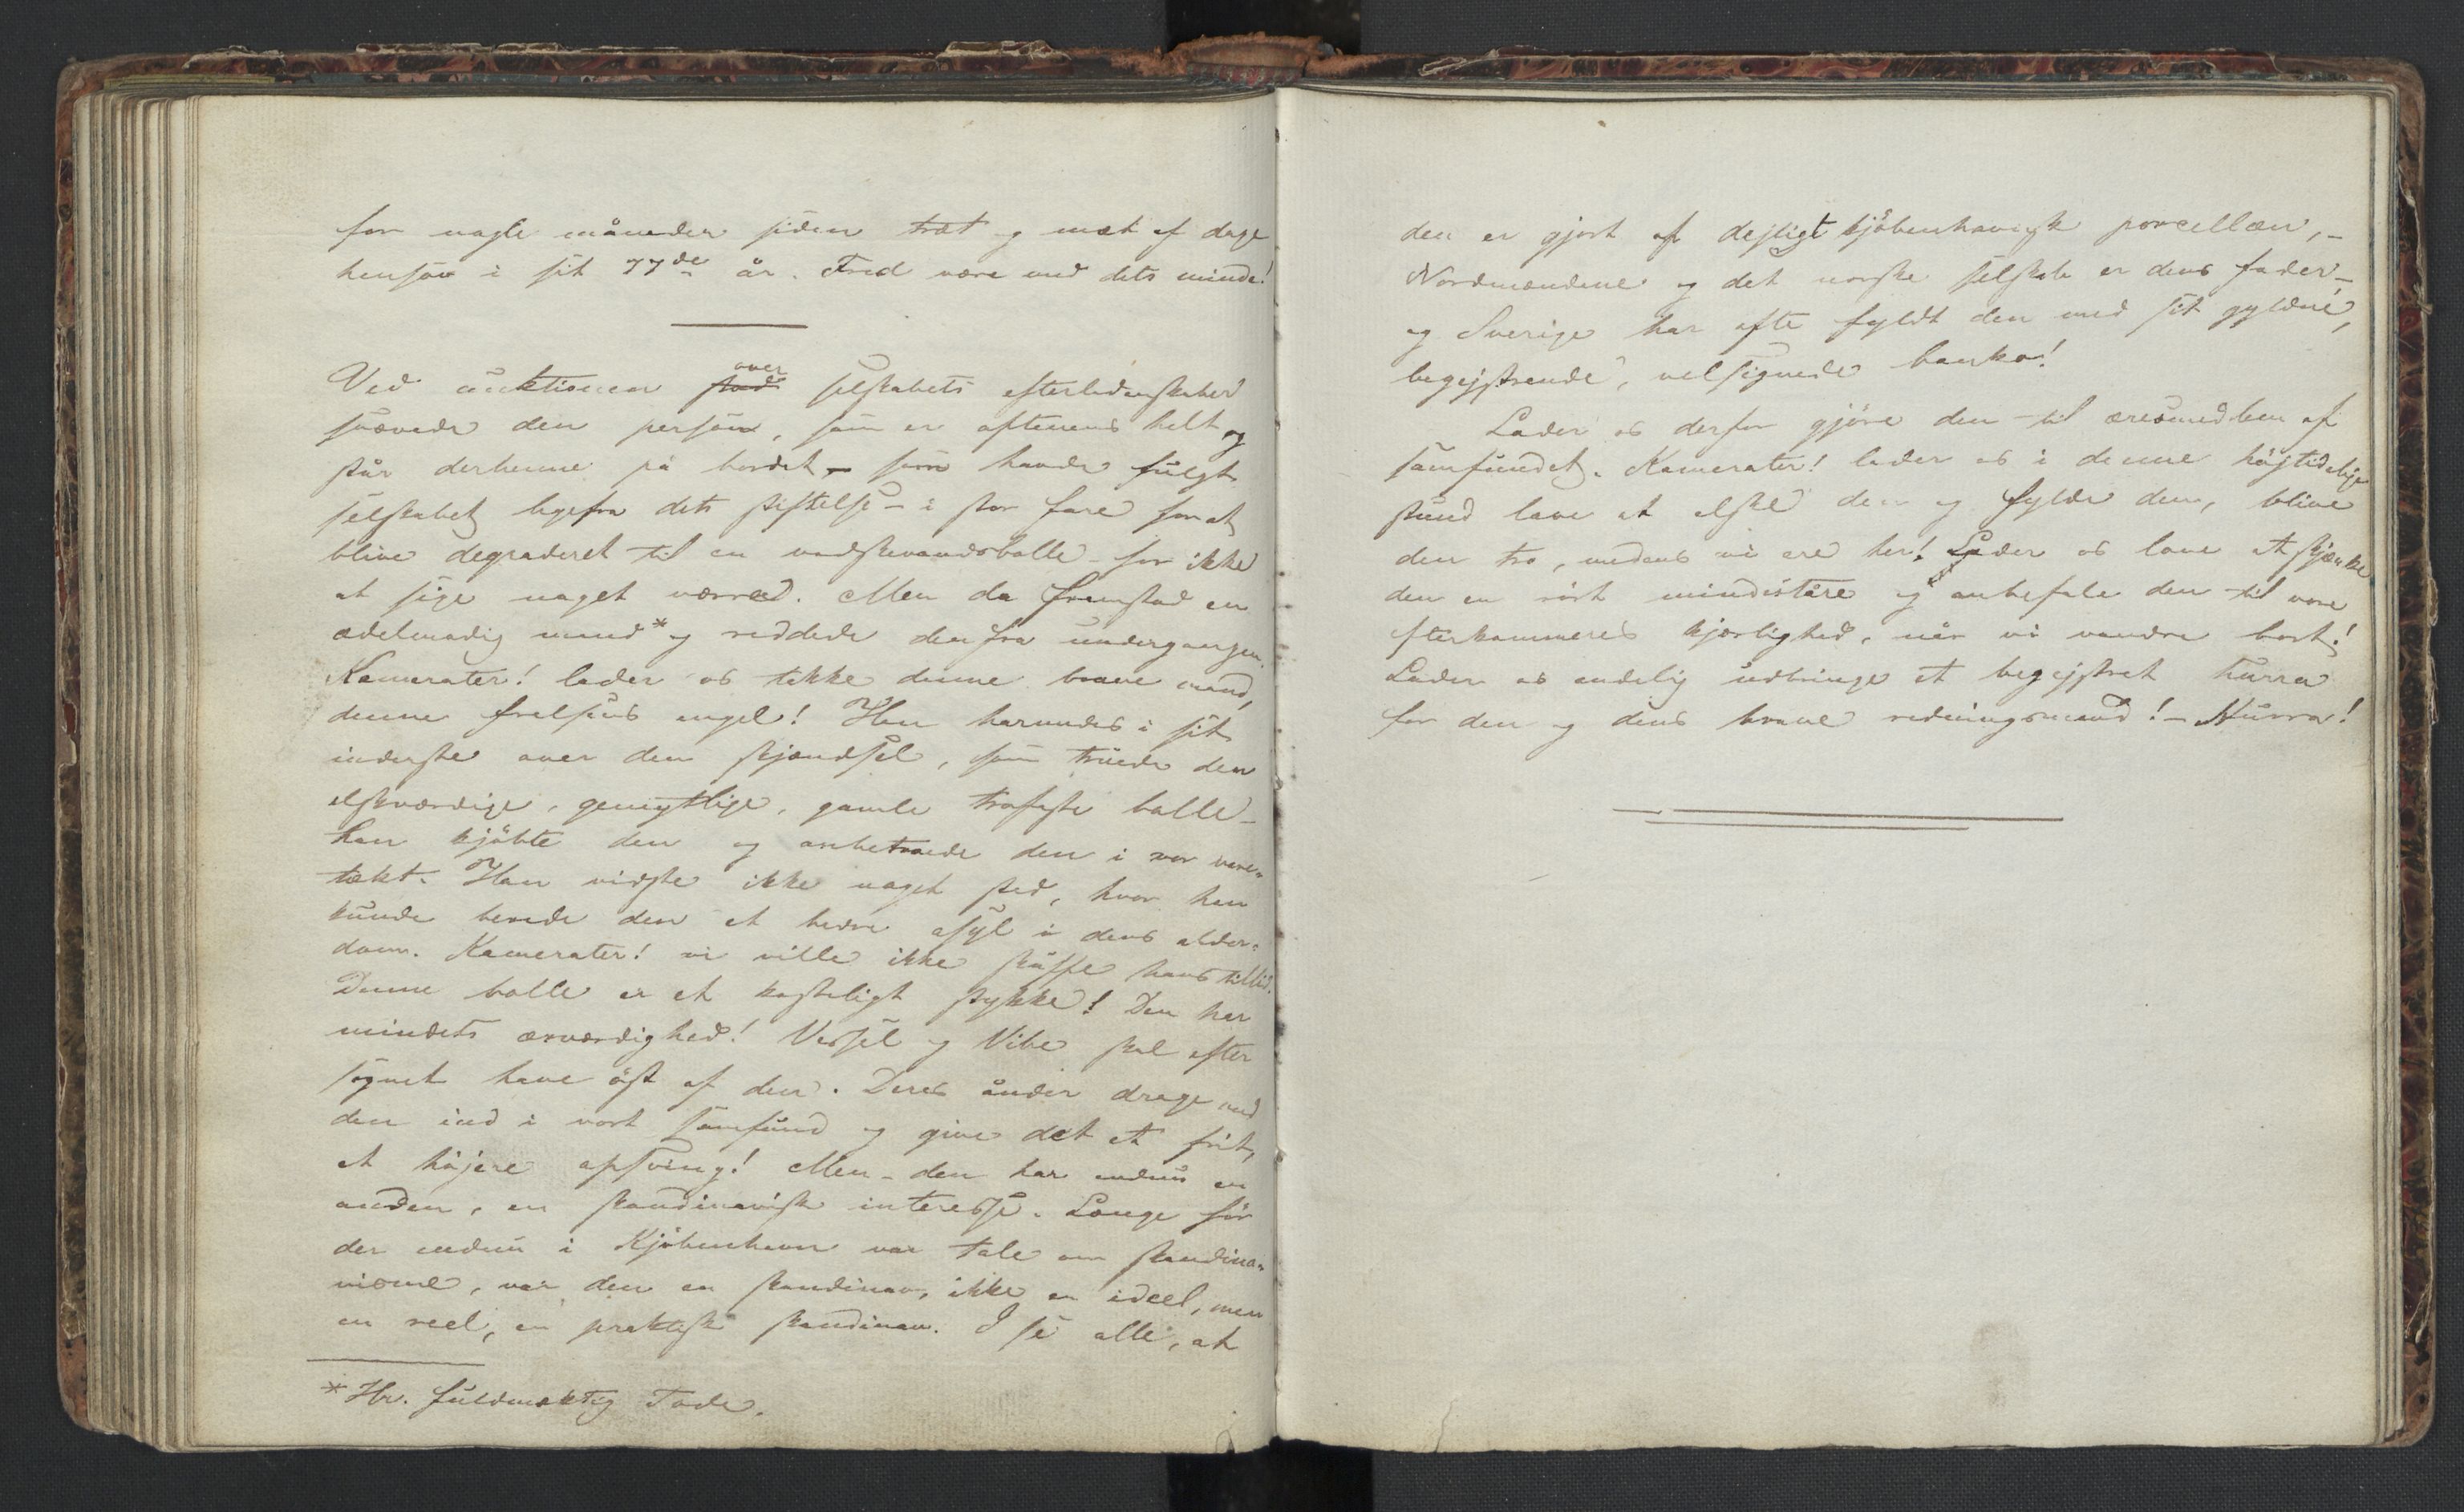 for nogle måneder siden træt og mæt af dage
hensov i sit 77de år. Fred være med dets minde!
Ved auktionen stod over selskabets efterladenskaber
svævede den person, som er aftenens helt og
står derhenne på bordet – som havde fulgt
selskabet ligefra dets stiftelse – i stor fare for at
blive degraderet til en vadskevandsbolle – for ikke
at sige noget værre. Men da fremstod en
ædelmodig mand* og reddede den fra undergangen.
Kamerater! lader os takke denne brave mand,
denne frelsens engel! Han harmedes i sit
inderste over den skjændsel, som truede den
elskværdige, gemytlige, gamle trofaste bolle –
han kjöbte den og anbetroede den i vor vare-
tækt. Han vidste ikke noget sted, hvor han
kunde berede den et bedre asyl i dens alder-
dom. Kamerater! vi ville ikke skuffe hans tillid.
Denne bolle er et kosteligt stykke! Den har
mindets ærværdighed! Vessel og Vibe skal efter
sagnet have öst af den. Deres ånder drage med
den ind i vort samfund og give det et frit,
et höjere opsving! Men – den har endnu en
anden, en skandinavisk interesse. Længe för
der endnu i Kjöbenhavn var tale om skandina-
visme, var den en skandinav, ikke en ideel, men
en reel, en praktisk skandinav. I se alle, at
* Hr. fuldmæktig Tode.
den er gjort af dejligt kjöbenhavnsk porcellæn, –
Nordmændene og det norske selskab er dens fader –
og Sverige har ofte fyldt den med sit gyldne,
begejstrende, velsignede banko!
Lader os derfor gjöre den til æresmedlem af
samfundet. Kamerater! lader os i denne höjtidelige
stund love at elske den og fylde den, blive
den tro, medens vi ere her! Lader os love at skjænke
den en rört mindetåre og anbefale den til vore
efterkommeres kjærlighed, når vi vandre bort!
Lader os endelig udbringe et begejstret hurra
for den og dens brave redningsmand! – Hurra!